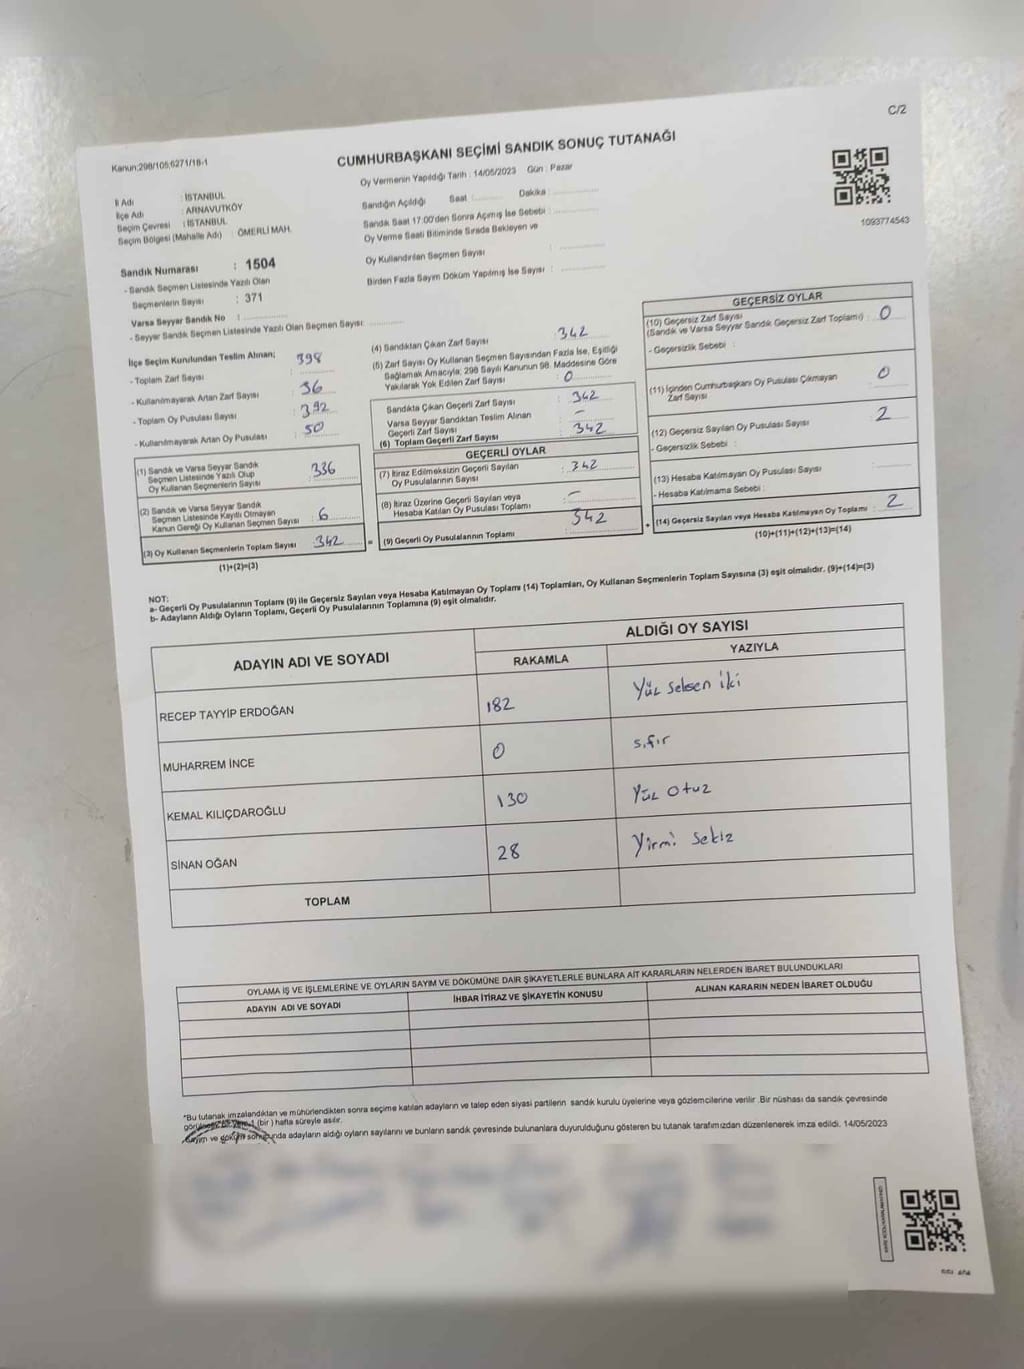 C/2
Kanun:298/105;6271/18-1
CUMHURBAŞKANI SEÇİMİ SANDIK SONUÇ TUTANAĞI
Oy Vermenin Yapıldığı Tarih : 14/05/2023 Gün : Pazar
İl Adı : İSTANBUL
İlçe Adı : ARNAVUTKÖY
Seçim Çevresi : İSTANBUL
Seçim Bölgesi (Mahalle Adı) : ÖMERLİ MAH.
Sandığın Açıldığı Saat : Dakika :
Sandık Saat 17:00'den Sonra Açımış İse Sebebi :
Oy Verme Saati Bitiminde Sırada Bekleyen ve
Oy Kullandırılan Seçmen Sayısı :
Birden Fazla Sayım Döküm Yapılmış İse Sayısı :
1093774543
Sandık Numarası : 1504
- Sandık Seçmen Listesinde Yazılı Olan
Seçmenlerin Sayısı : 371
Varsa Seyyar Sandık No :
- Seyyar Sandık Seçmen Listesinde Yazılı Olan Seçmen Sayısı:
İlçe Seçim Kurulundan Teslim Alınan;
- Toplam Zarf Sayısı : 398
- Kullanılmayarak Artan Zarf Sayısı : 36
- Toplam Oy Pusulası Sayısı : 392
- Kullanılmayarak Artan Oy Pusulası : 50
(1) Sandık ve Varsa Seyyar Sandık
Seçmen Listesinde Yazılı Olup
Oy Kullanan Seçmenlerin Sayısı : 336
(2) Sandık ve Varsa Seyyar Sandık
Seçmen Listesinde Kayıtlı Olmayan
Kanun Gereği Oy Kullanan Seçmen Sayısı : 6
(3) Oy Kullanan Seçmenlerin Toplam Sayısı : 342
(1)+(2)=(3)
(4) Sandıktan Çıkan Zarf Sayısı : 342
(5) Zarf Sayısı Oy Kullanan Seçmen Sayısından Fazla İse, Eşitliği
Sağlamak Amacıyla; 298 Sayılı Kanunun 98. Maddesine Göre
Yakılarak Yok Edilen Zarf Sayısı : 0
Sandıkta Çıkan Geçerli Zarf Sayısı : 342
Varsa Seyyar Sandıktan Teslim Alınan
Geçerli Zarf Sayısı : -
(6) Toplam Geçerli Zarf Sayısı : 342
=
GEÇERLİ OYLAR
(7) İtiraz Edilmeksizin Geçerli Sayılan
Oy Pusulalarının Sayısı : 342
(8) İtiraz Üzerine Geçerli Sayılan veya
Hesaba Katılan Oy Pusulası Toplamı : -
(9) Geçerli Oy Pusulalarının Toplamı : 342
+
GEÇERSİZ OYLAR
(10) Geçersiz Zarf Sayısı
(Sandık ve Varsa Seyyar Sandık Geçersiz Zarf Toplamı) : 0
- Geçersizlik Sebebi :
(11) İçinden Cumhurbaşkanı Oy Pusulası Çıkmayan
Zarf Sayısı : 0
(12) Geçersiz Sayılan Oy Pusulası Sayısı : 2
- Geçersizlik Sebebi :
(13) Hesaba Katılmayan Oy Pusulası Sayısı :
- Hesaba Katılmama Sebebi :
(14) Geçersiz Sayılan veya Hesaba Katılmayan Oy Toplamı : 2
(10)+(11)+(12)+(13)=(14)
NOT:
a- Geçerli Oy Pusulalarının Toplamı (9) ile Geçersiz Sayılan veya Hesaba Katılmayan Oy Toplamı (14) Toplamları, Oy Kullanan Seçmenlerin Toplam Sayısına (3) eşit olmalıdır. (9)+(14)=(3)
b- Adayların Aldığı Oyların Toplamı, Geçerli Oy Pusulalarının Toplamına (9) eşit olmalıdır.
ADAYIN ADI VE SOYADI
ALDIĞI OY SAYISI
RAKAMLA YAZIYLA
RECEP TAYYİP ERDOĞAN 182 Yüz seksen iki
MUHARREM İNCE 0 sıfır
KEMAL KILIÇDAROĞLU 130 Yüz Otuz
SİNAN OĞAN 28 Yirmi Sekiz
TOPLAM
OYLAMA İŞ VE İŞLEMLERİNE VE OYLARIN SAYIM VE DÖKÜMÜNE DAİR ŞİKAYETLERLE BUNLARA AİT KARARLARIN NELERDEN İBARET BULUNDUKLARI
ADAYIN ADI VE SOYADI İHBAR İTİRAZ VE ŞİKAYETİN KONUSU ALINAN KARARIN NEDEN İBARET OLDUĞU
"Bu tutanak imzalandıktan ve mühürlendikten sonra seçime katılan adayların ve talep eden siyasi partilerin sandık kurulu üyelerine veya gözlemcilerine verilir. Bir nüshası da sandık çevresinde
1 (bir) hafta süreyle asılır.
Sayım ve döküm sonucunda adayların aldığı oyların sayılarını ve bunların sandık çevresinde bulunanlara duyurulduğunu gösteren bu tutanak tarafımızdan düzenlenerek imza edildi. 14/05/2023